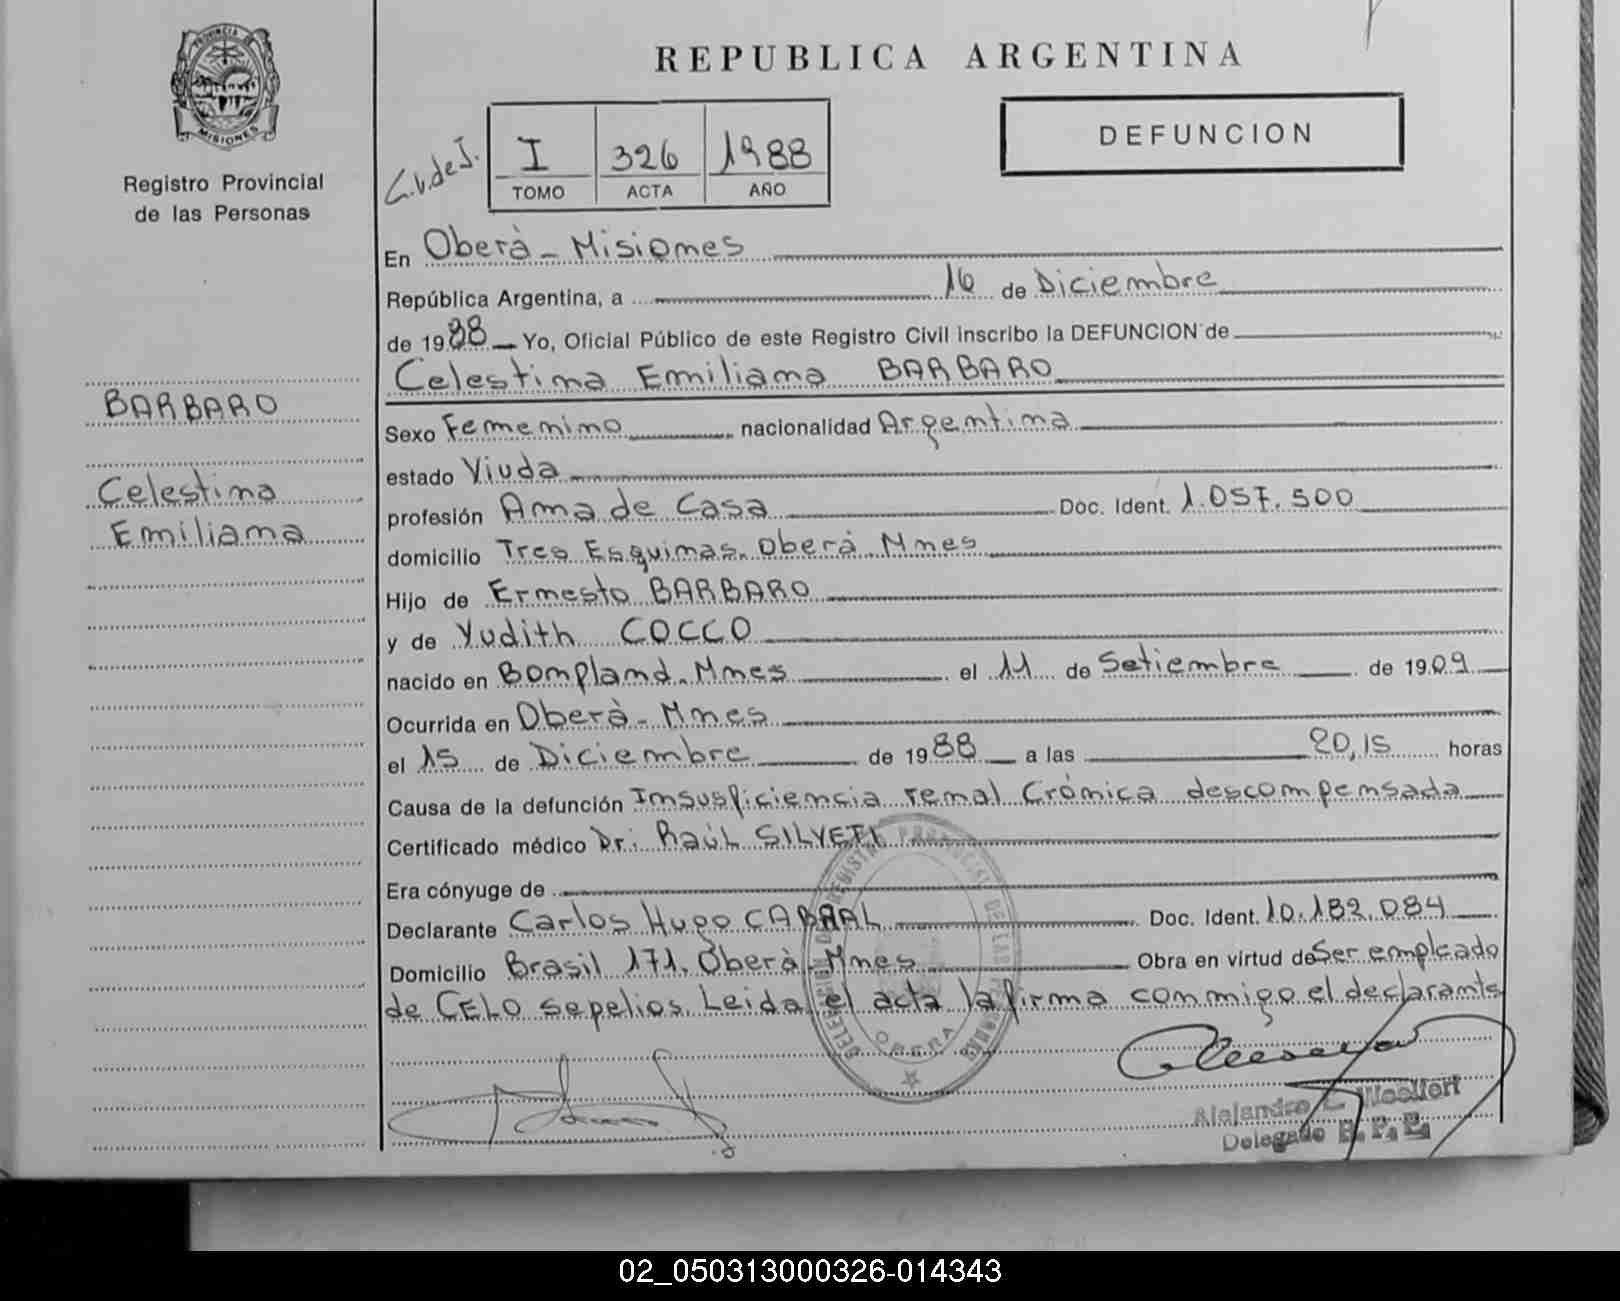 PROVINCIA DE
MISIONES
Registro Provincial
de las Personas
REPUBLICA ARGENTINA
DEFUNCION
C.V. de I.
I 326 1988
TOMO ACTA AÑO
En Oberà - Misiones
República Argentina, a 16 de Diciembre
de 1988 Yo, Oficial Público de este Registro Civil inscribo la DEFUNCION de
Celestina Emiliana BARBARO
BARBARO
Celestina
Emiliana
Sexo Femenino nacionalidad Argentina
estado Viuda
profesión Ama de Casa Doc. Ident. 1.057.500
domicilio Tres Esquinas. Oberà. Mnes
Hijo de Ernesto BARBARO
y de Yudith COCCO
nacido en Bonpland. Mnes el 11 de Setiembre de 1909
Ocurrida en Oberà - Mnes
el 15 de Diciembre de 1988 a las 20,15 horas
Causa de la defunción Insuficiencia renal Crónica descompensada
Certificado médico Dr: Raúl SILVETI
Era cónyuge de
Declarante Carlos Hugo CABRAL Doc. Ident. 10.182.084
Domicilio Brasil 171. Oberà - Mnes Obra en virtud de Ser empleado
de CELO sepelios. Leida el acta la firma conmigo el declarante
OBERA
Delegado
02_050313000326-014343